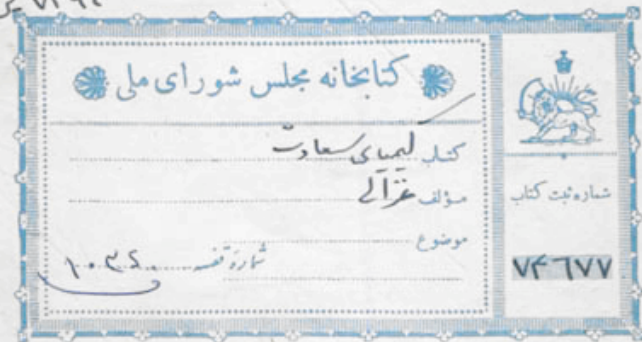 کتابخانه مجلس شورای ملی
کتاب کیمیای سعادت
مؤلف غزالی
موضوع
شماره قفسه ۱۰۳۴۰
شماره ثبت کتاب
۷۴۶۷۷